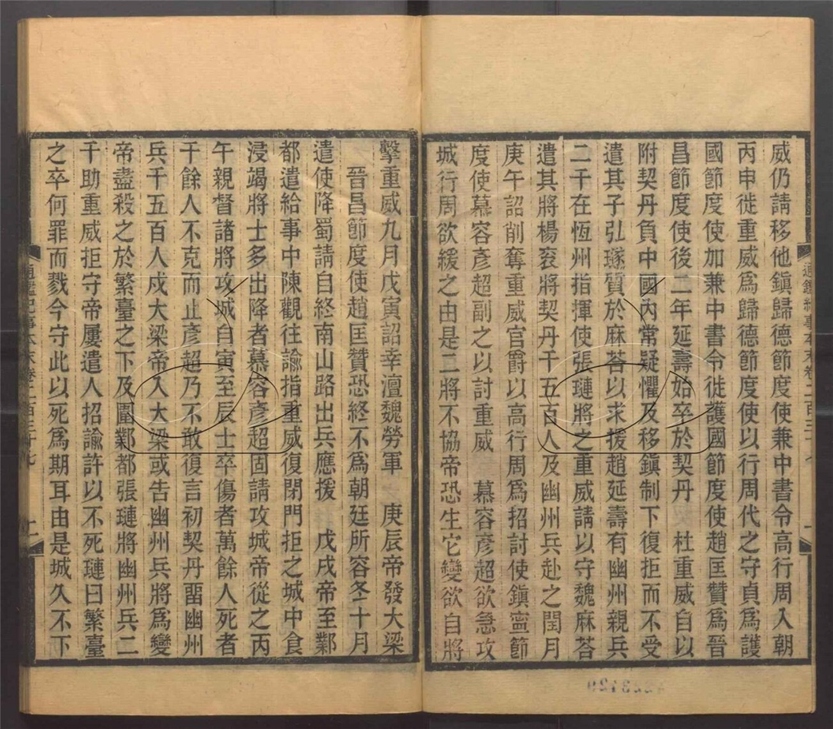 威仍請移他鎮歸德節度使兼中書令高行周入朝
丙申徙重威爲歸德節度使以行周代之守貞爲護
國節度使加兼中書令徙護國節度使趙匡贊爲晉
昌節度使後二年延壽始卒於契丹　杜重威自以
附契丹負中國內常疑懼及移鎮制下復拒而不受
遣其子弘璲質於麻荅以求援趙延壽有幽州親兵
二千在恆州指揮使張璉將之重威請以守魏麻荅
遣其將楊袞將契丹千五百人及幽州兵赴之閏月
庚午詔削奪重威官爵以高行周爲招討使鎮寧節
度使慕容彥超副之以討重威　慕容彥超欲急攻
城行周欲緩之由是二將不協帝恐生它變欲自將
擊重威九月戊寅詔幸澶魏勞軍　庚辰帝發大梁
晉昌節度使趙匡贊恐終不爲朝廷所容冬十月
遣使降蜀請自終南山路出兵應援　戊戌帝至鄴
都遣給事中陳觀往諭指重威復閉門拒之城中食
浸竭將士多出降者慕容彥超固請攻城帝從之丙
午親督諸將攻城自寅至辰士卒傷者萬餘人死者
千餘人不克而止彥超乃不敢復言初契丹畱幽州
兵千五百人戍大梁帝入大梁或告幽州兵將爲變
帝盡殺之於繁臺之下及圍鄴都張璉將幽州兵二
千助重威拒守帝屢遣人招諭許以不死璉曰繁臺
之卒何罪而戮今守此以死爲期耳由是城久不下
通鑑紀事本末卷二百三十七